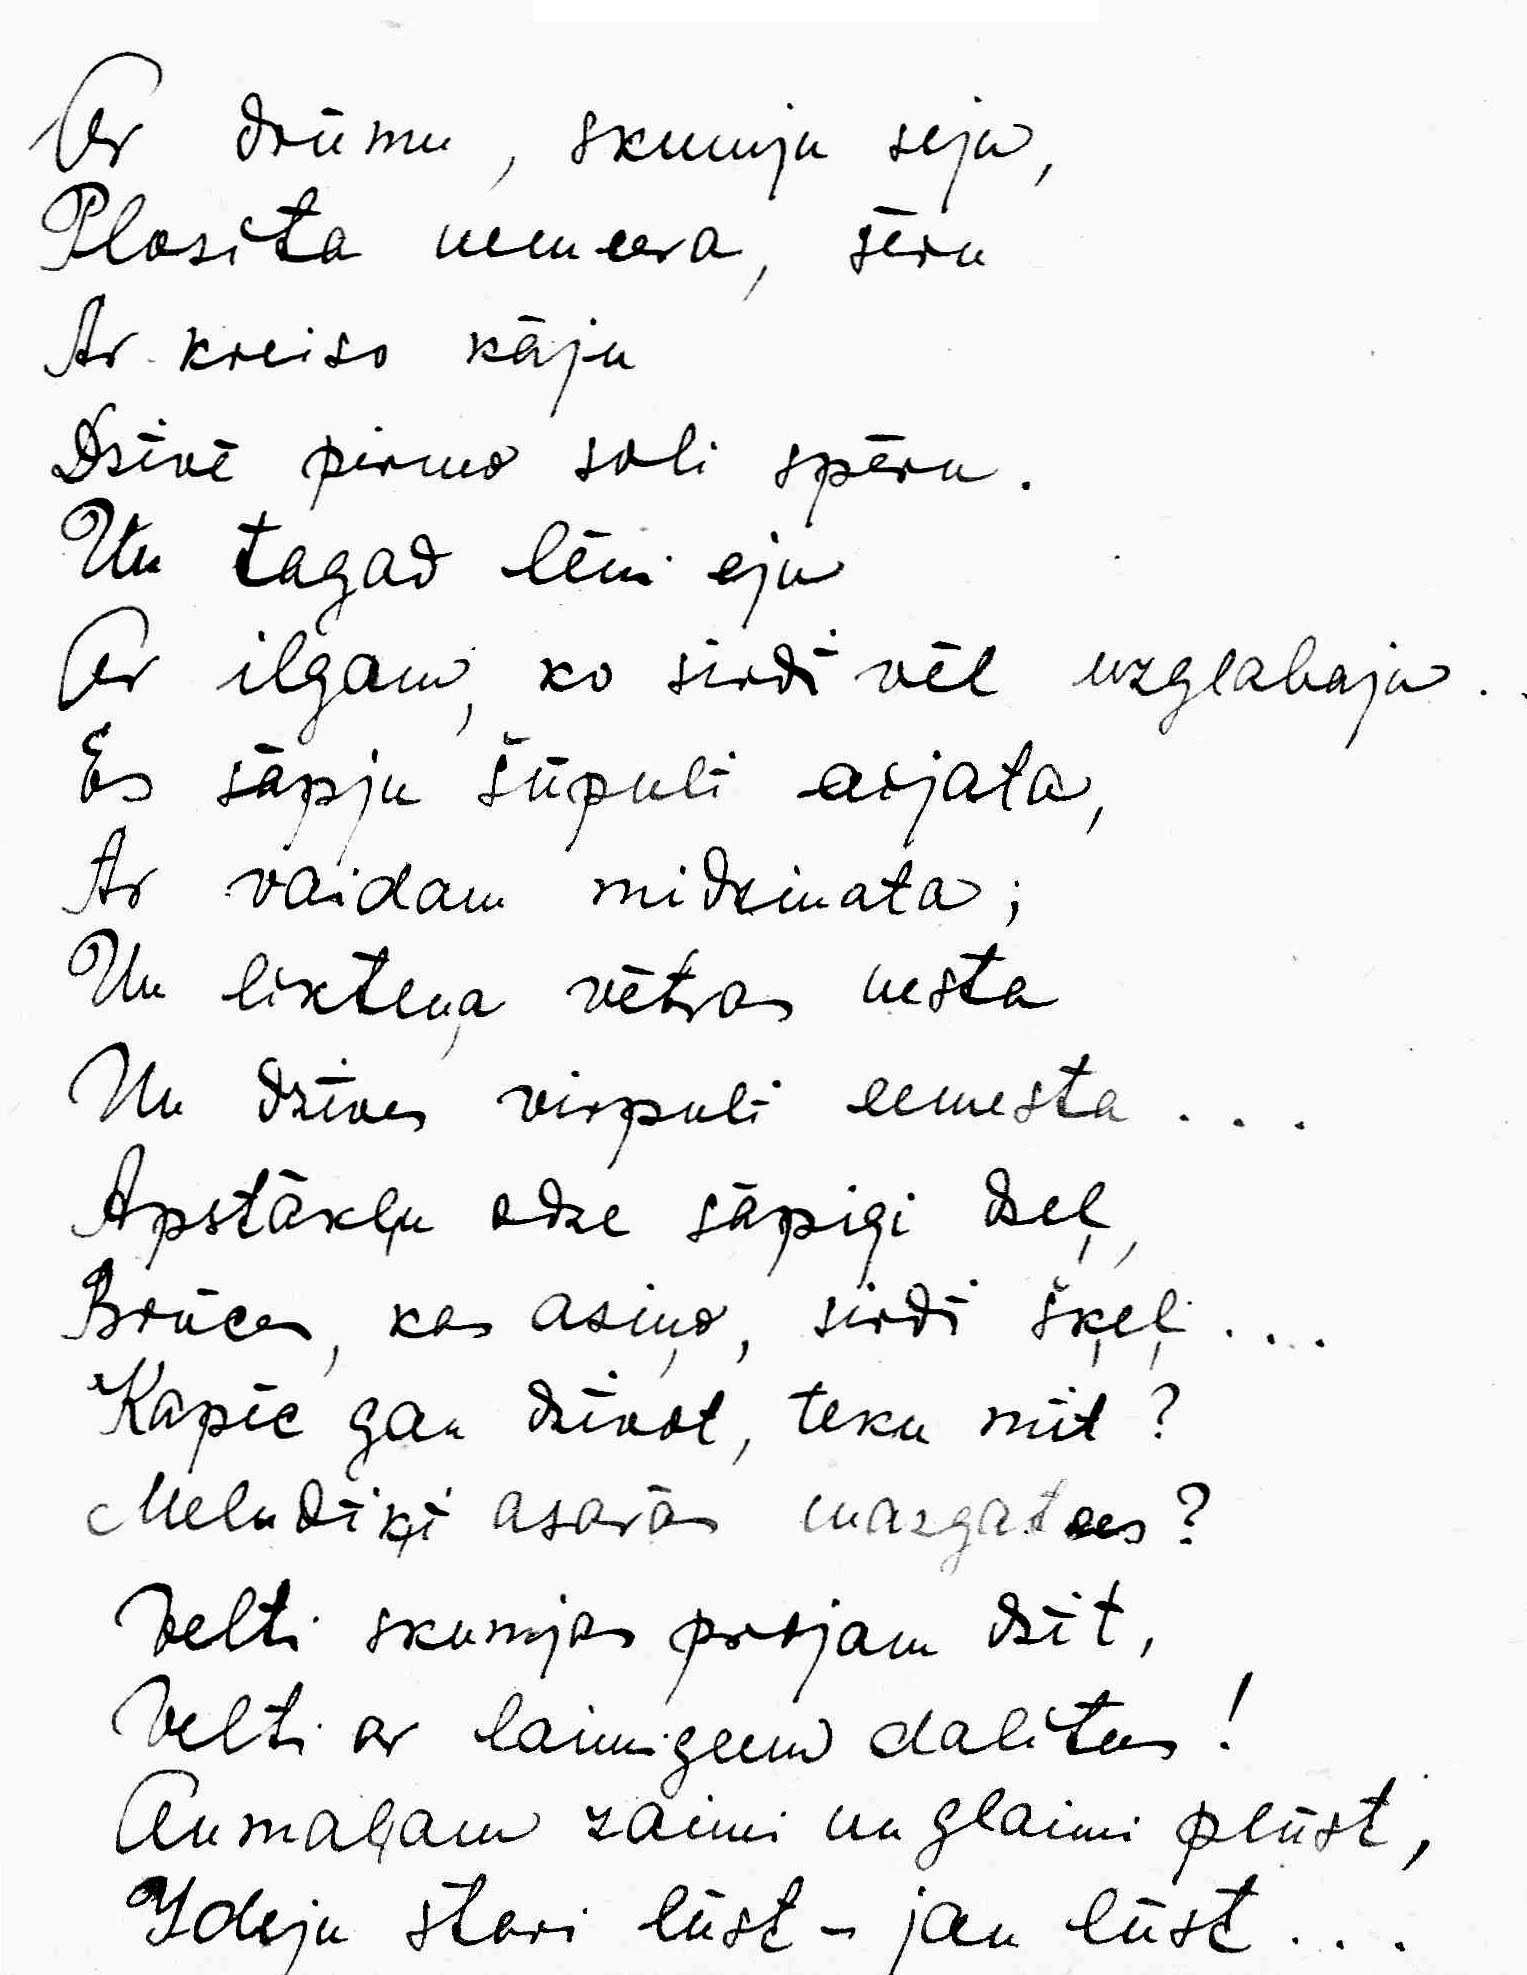 Ar drūmu, skumju seju,
Plosīta nemeera, sēru
Ar kreiso kāju
Dzīvē pirmo soli spēru.
Un tagad lēni eju
Ar ilgam, ko sirdī vēl uzglabaju..
Es sāpju šūpulī aijata,
Ar vaidam midzinata;
Un likteņa vētras nesta
Un dzīves virpulī eemesta...
Apstākļu odze sāpigi dzeļ,
Brūces, kas asiņo, sirdī šķeļ....
Kapēc gan dzīvot, teku mīt?
Meludīķī asarās mazgatees?
Velti skumjas projam dzīt,
Velti ar laimigeem dalītees!
Aumaļam zaimi un glaimi plūst,
Ideju stari lūst – jau lūst...